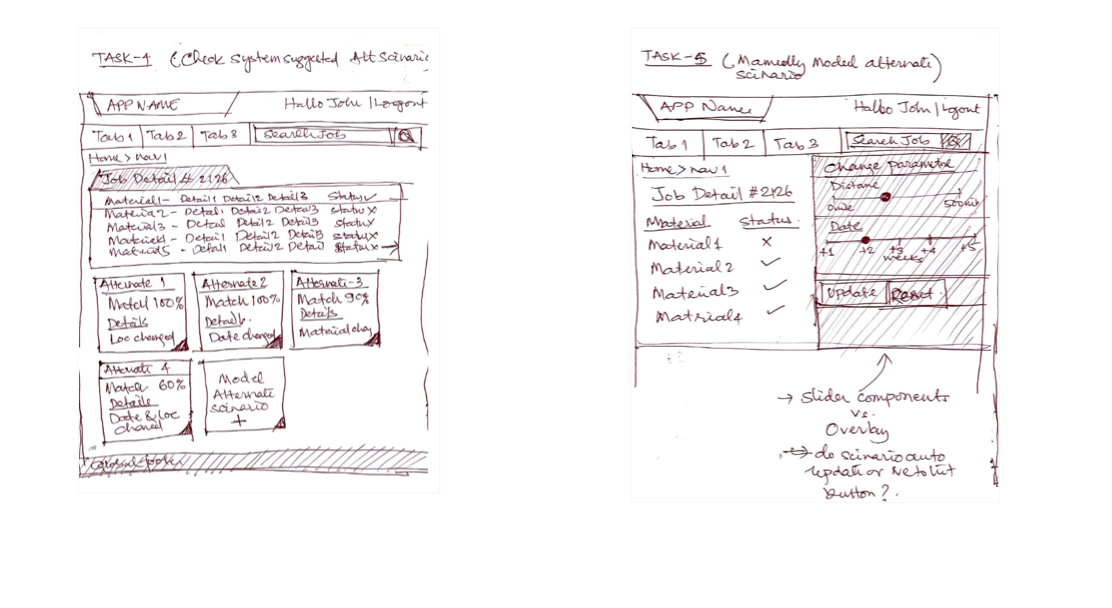 TASK-4 (Check system suggested Alt Scinario
APP NAME
Hallo John | Logout
Tab 1 Tab 2 Tab 3 Search Job
Home > nav 1
Job Detail # 2126
Material1 - Detail1 Detail2 Detail3 Status ✓
Material2 - Detail1 Detail2 Detail3 Status X
Material3 - Detail Detail2 Detail3 Status X
Material4 - Detail1 Detail2 Detail3 Status X
Material5 - Detail1 Detail2 Detail Status X →
Alternate 1
Match 100%
Details
Loc changed
Alternate 2
Match 100%
Details
Date changed
Alternate-3
Match 90%
Details
Material chang
Alternate 4
Match 60%
Details
Date & Loc
changed
Model
Alternate
scinario
+
Global footer
TASK-5 (Manually Model alternate)
scinario
APP Name
Hallo John | Logout
Tab 1 Tab 2 Tab 3 Search Job
Home > nav 1
Job Detail #2126
Material Status
Material1 X
Material2 ✓
Material3 ✓
Matrial4 ✓
Change parameter
Distane
500mile
Date
+1 +2 +3 +4 +5
weeks
Update Reset
→ slider components
vs.
Overlay
→ do scinario auto
update or Ne to hit
button?